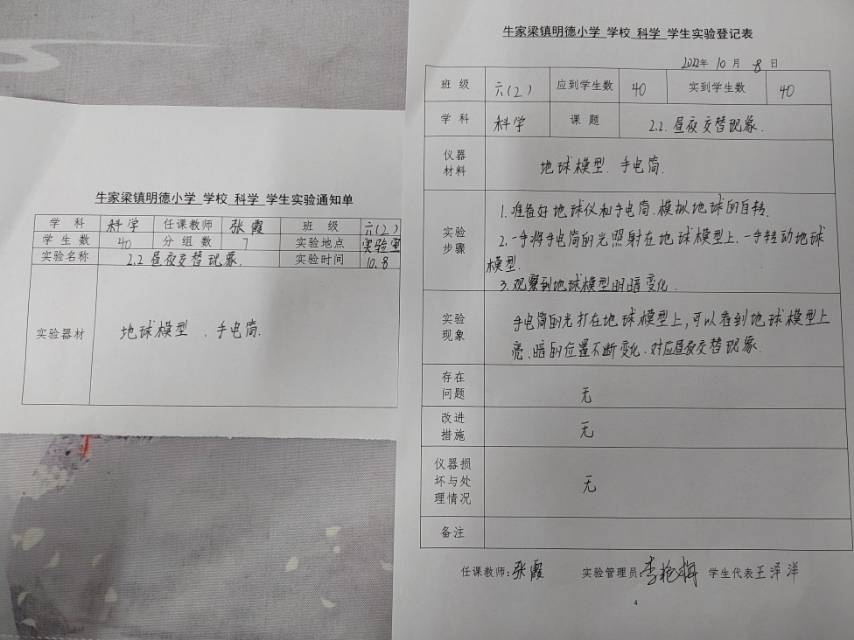 牛家梁镇明德小学 学校 科学 学生实验通知单
学 科 科学 任课教师 张霞 班 级 六(2)
学 生 数 40 分 组 数 7 实验地点 实验室
实验名称 2.2 昼夜交替现象. 实验时间 10.8
实验器材 地球模型 、手电筒.
牛家梁镇明德小学 学校 科学 学生实验登记表
2022年 10 月 8 日
班 级 六(2) 应到学生数 40 实到学生数 40
学 科 科学 课 题 2.2. 昼夜交替现象.
仪器
材料
地球模型 手电筒.
实验
步骤
1. 准备好地球仪和手电筒.模拟地球的自转.
2. 一手将手电筒的光照射在地球模型上、一手转动地球
模型.
3. 观察到地球模型明暗变化.
实验
现象
手电筒的光打在地球模型上,可以看到地球模型上
亮、暗的位置不断变化.对应昼夜交替现象.
存在
问题
无
改进
措施
无
仪器损
坏与处
理情况
无
备注
任课教师:张霞 实验管理员:李艳梅 学生代表王泽洋
4